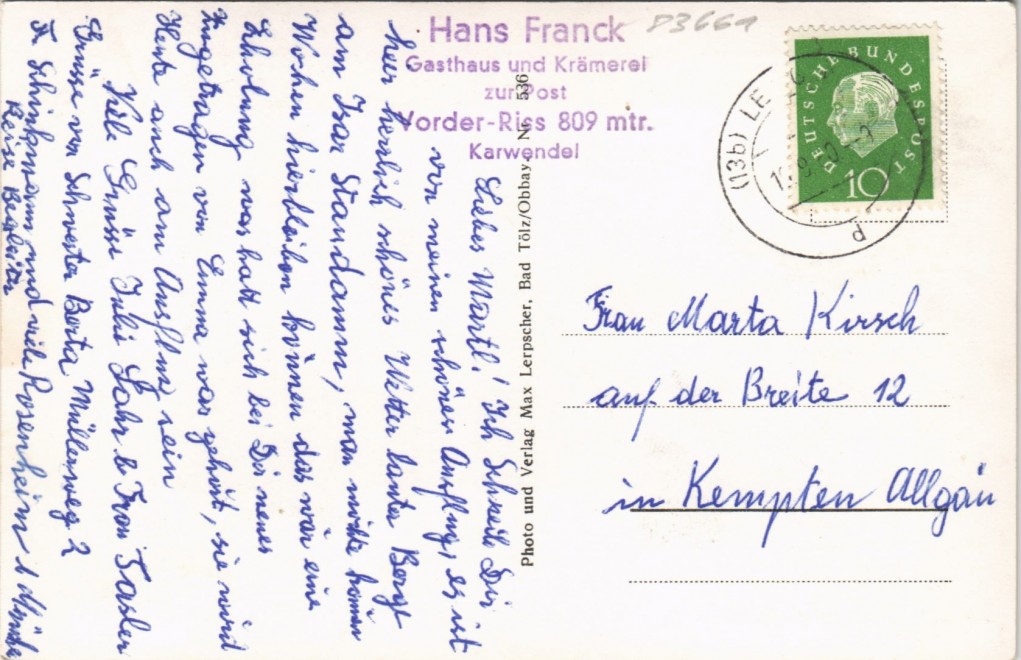 Hans Franck
Gasthaus und Krämerei
zur Post
Vorder-Riss 809 mtr.
Karwendel
D3661
DEUTSCHE BUNDESPOST
10
(13b) LE
d
Photo und Verlag Max Lerpscher, Bad Tölz/Obbay. Nr. 536
Liebes Martl! Ich Schreibe Dir
von meinen schönen Ausflug, es ist
hier herrlich schönes Wetter lauter Berge
am Isar Standamm, man möchte hier
Wochen hierbleiben können das wär eine
Erholung was hatt sich bei Dir neues
zugetragen von Emma was gehört, sie wird
Heute auch am Ausflug sein
Viele Grüße Julie Lahr & Frau
Grüsse von Schwester Berta Müllerweg 2
Fr. Schinkmann und viele Rosenheim
Reise
Frau Marta Kirsch
auf der Breite 12
in Kempten Allgäu